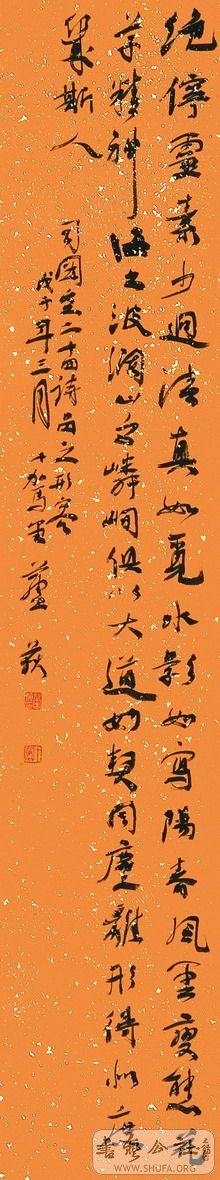 絶佇靈素少迴清真如覓水影如寫陽春風雲變態花
草精神海之波瀾山之嶙峋俱似大道妙契同塵離形得似庶
幾斯人
司空圖二十四詩品之形容
戊子年三月
書藝公社
WWW.SHUFA.ORG